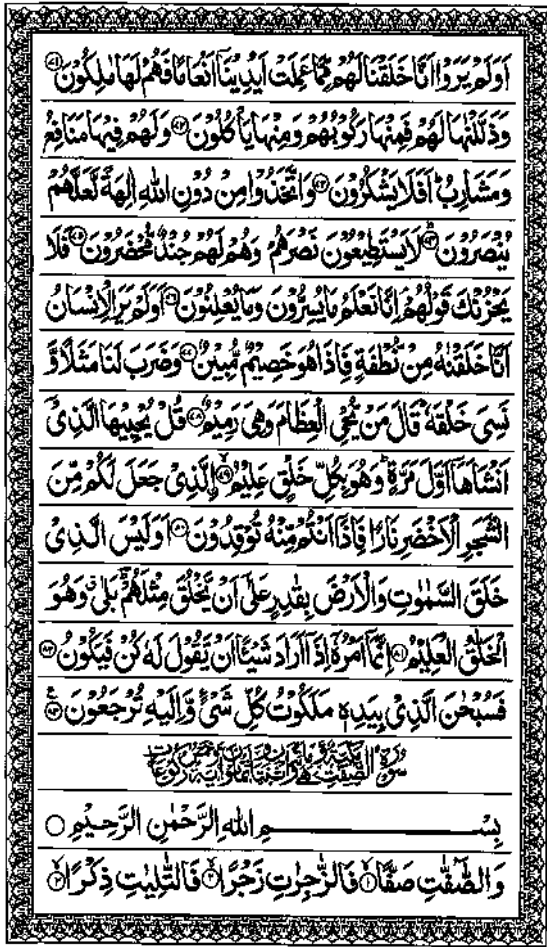 اَوَلَمْ يَرَوْا اَنَّا خَلَقْنَا لَهُمْ مِّمَّا عَمِلَتْ اَيْدِيْنَاۤ اَنْعَامًا فَهُمْ لَهَا مٰلِكُوْنَ ۝۷۱
وَذَلَّلْنٰهَا لَهُمْ فَمِنْهَا رَكُوْبُهُمْ وَمِنْهَا يَاْكُلُوْنَ ۝۷۲ وَلَهُمْ فِيْهَا مَنَافِعُ
وَمَشَارِبُ ؕ اَفَلَا يَشْكُرُوْنَ ۝۷۳ وَاتَّخَذُوْا مِنْ دُوْنِ اللّٰهِ اٰلِهَةً لَّعَلَّهُمْ
يُنْصَرُوْنَ ۝۷۴ؕ لَا يَسْتَطِيْعُوْنَ نَصْرَهُمْ وَهُمْ لَهُمْ جُنْدٌ مُّحْضَرُوْنَ ۝۷۵ فَلَا
يَحْزُنْكَ قَوْلُهُمْ ۘ اِنَّا نَعْلَمُ مَا يُسِرُّوْنَ وَمَا يُعْلِنُوْنَ ۝۷۶ اَوَلَمْ يَرَ الْاِنْسَانُ
اَنَّا خَلَقْنٰهُ مِنْ نُّطْفَةٍ فَاِذَا هُوَ خَصِيْمٌ مُّبِيْنٌ ۝۷۷ وَضَرَبَ لَنَا مَثَلًا وَّ
نَسِيَ خَلْقَهٗ ؕ قَالَ مَنْ يُّحْيِ الْعِظَامَ وَهِيَ رَمِيْمٌ ۝۷۸ قُلْ يُحْيِيْهَا الَّذِيْۤ
اَنْشَاَهَاۤ اَوَّلَ مَرَّةٍ ؕ وَهُوَ بِكُلِّ خَلْقٍ عَلِيْمُ ۝۷۹ۙ اِ۟لَّذِيْ جَعَلَ لَكُمْ مِّنَ
الشَّجَرِ الْاَخْضَرِ نَارًا فَاِذَاۤ اَنْتُمْ مِّنْهُ تُوْقِدُوْنَ ۝۸۰ اَوَلَيْسَ الَّذِيْ
خَلَقَ السَّمٰوٰتِ وَالْاَرْضَ بِقٰدِرٍ عَلٰۤى اَنْ يَّخْلُقَ مِثْلَهُمْ ؕ بَلٰى ۗ وَهُوَ
الْخَلّٰقُ الْعَلِيْمُ ۝۸۱ اِنَّمَاۤ اَمْرُهٗۤ اِذَاۤ اَرَادَ شَيْـًٔا اَنْ يَّقُوْلَ لَهٗ كُنْ فَيَكُوْنُ ۝۸۲
فَسُبْحٰنَ الَّذِيْ بِيَدِهٖ مَلَكُوْتُ كُلِّ شَيْءٍ وَّاِلَيْهِ تُرْجَعُوْنَ ۝۸۳
بِسْمِ اللّٰهِ الرَّحْمٰنِ الرَّحِيْمِ ۝
وَالصّٰٓفّٰتِ صَفًّا ۝۱ۙ فَالزّٰجِرٰتِ زَجْرًا ۝۲ۙ فَالتّٰلِيٰتِ ذِكْرًا ۝۳ۙ